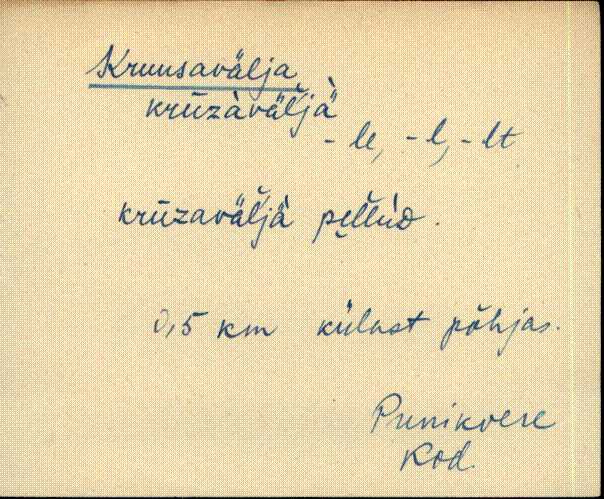 Kruusavälja
krūzàväl̆jä̀
- le, - l, - lt
krūzaväl̆jä pel̆lùD.
0,5 km külast põhjas.
Punikvere
Kod.